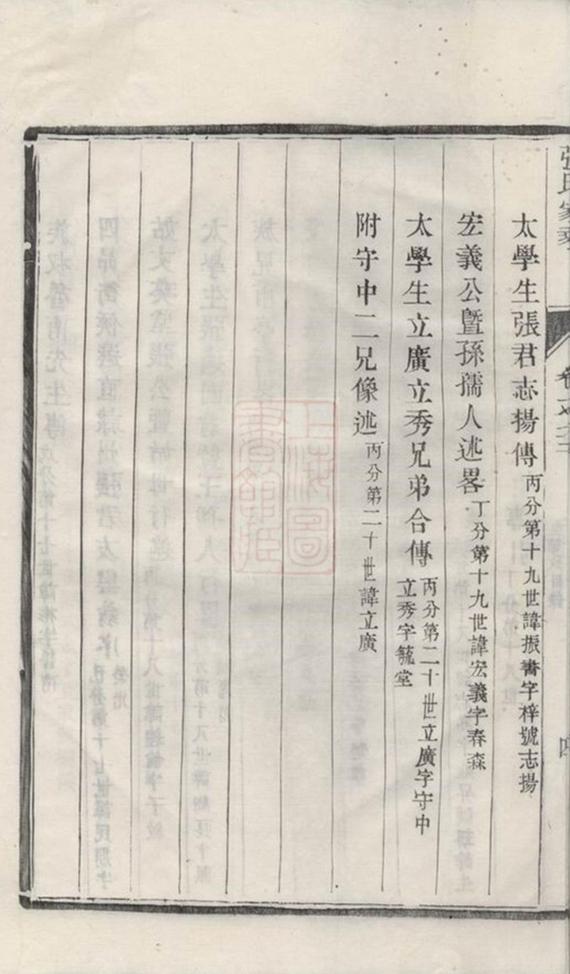 張氏家乘
太學生張君志揚傳丙分第十九世諱振書字梓號志揚
宏義公暨孫孺人述畧丁分第十九世諱宏義字春森
太學生立廣立秀兄弟合傳丙分第二十世立廣字守中
立秀字毓堂
附守中二兄像述丙分第二十世諱立廣
上海圖書館藏